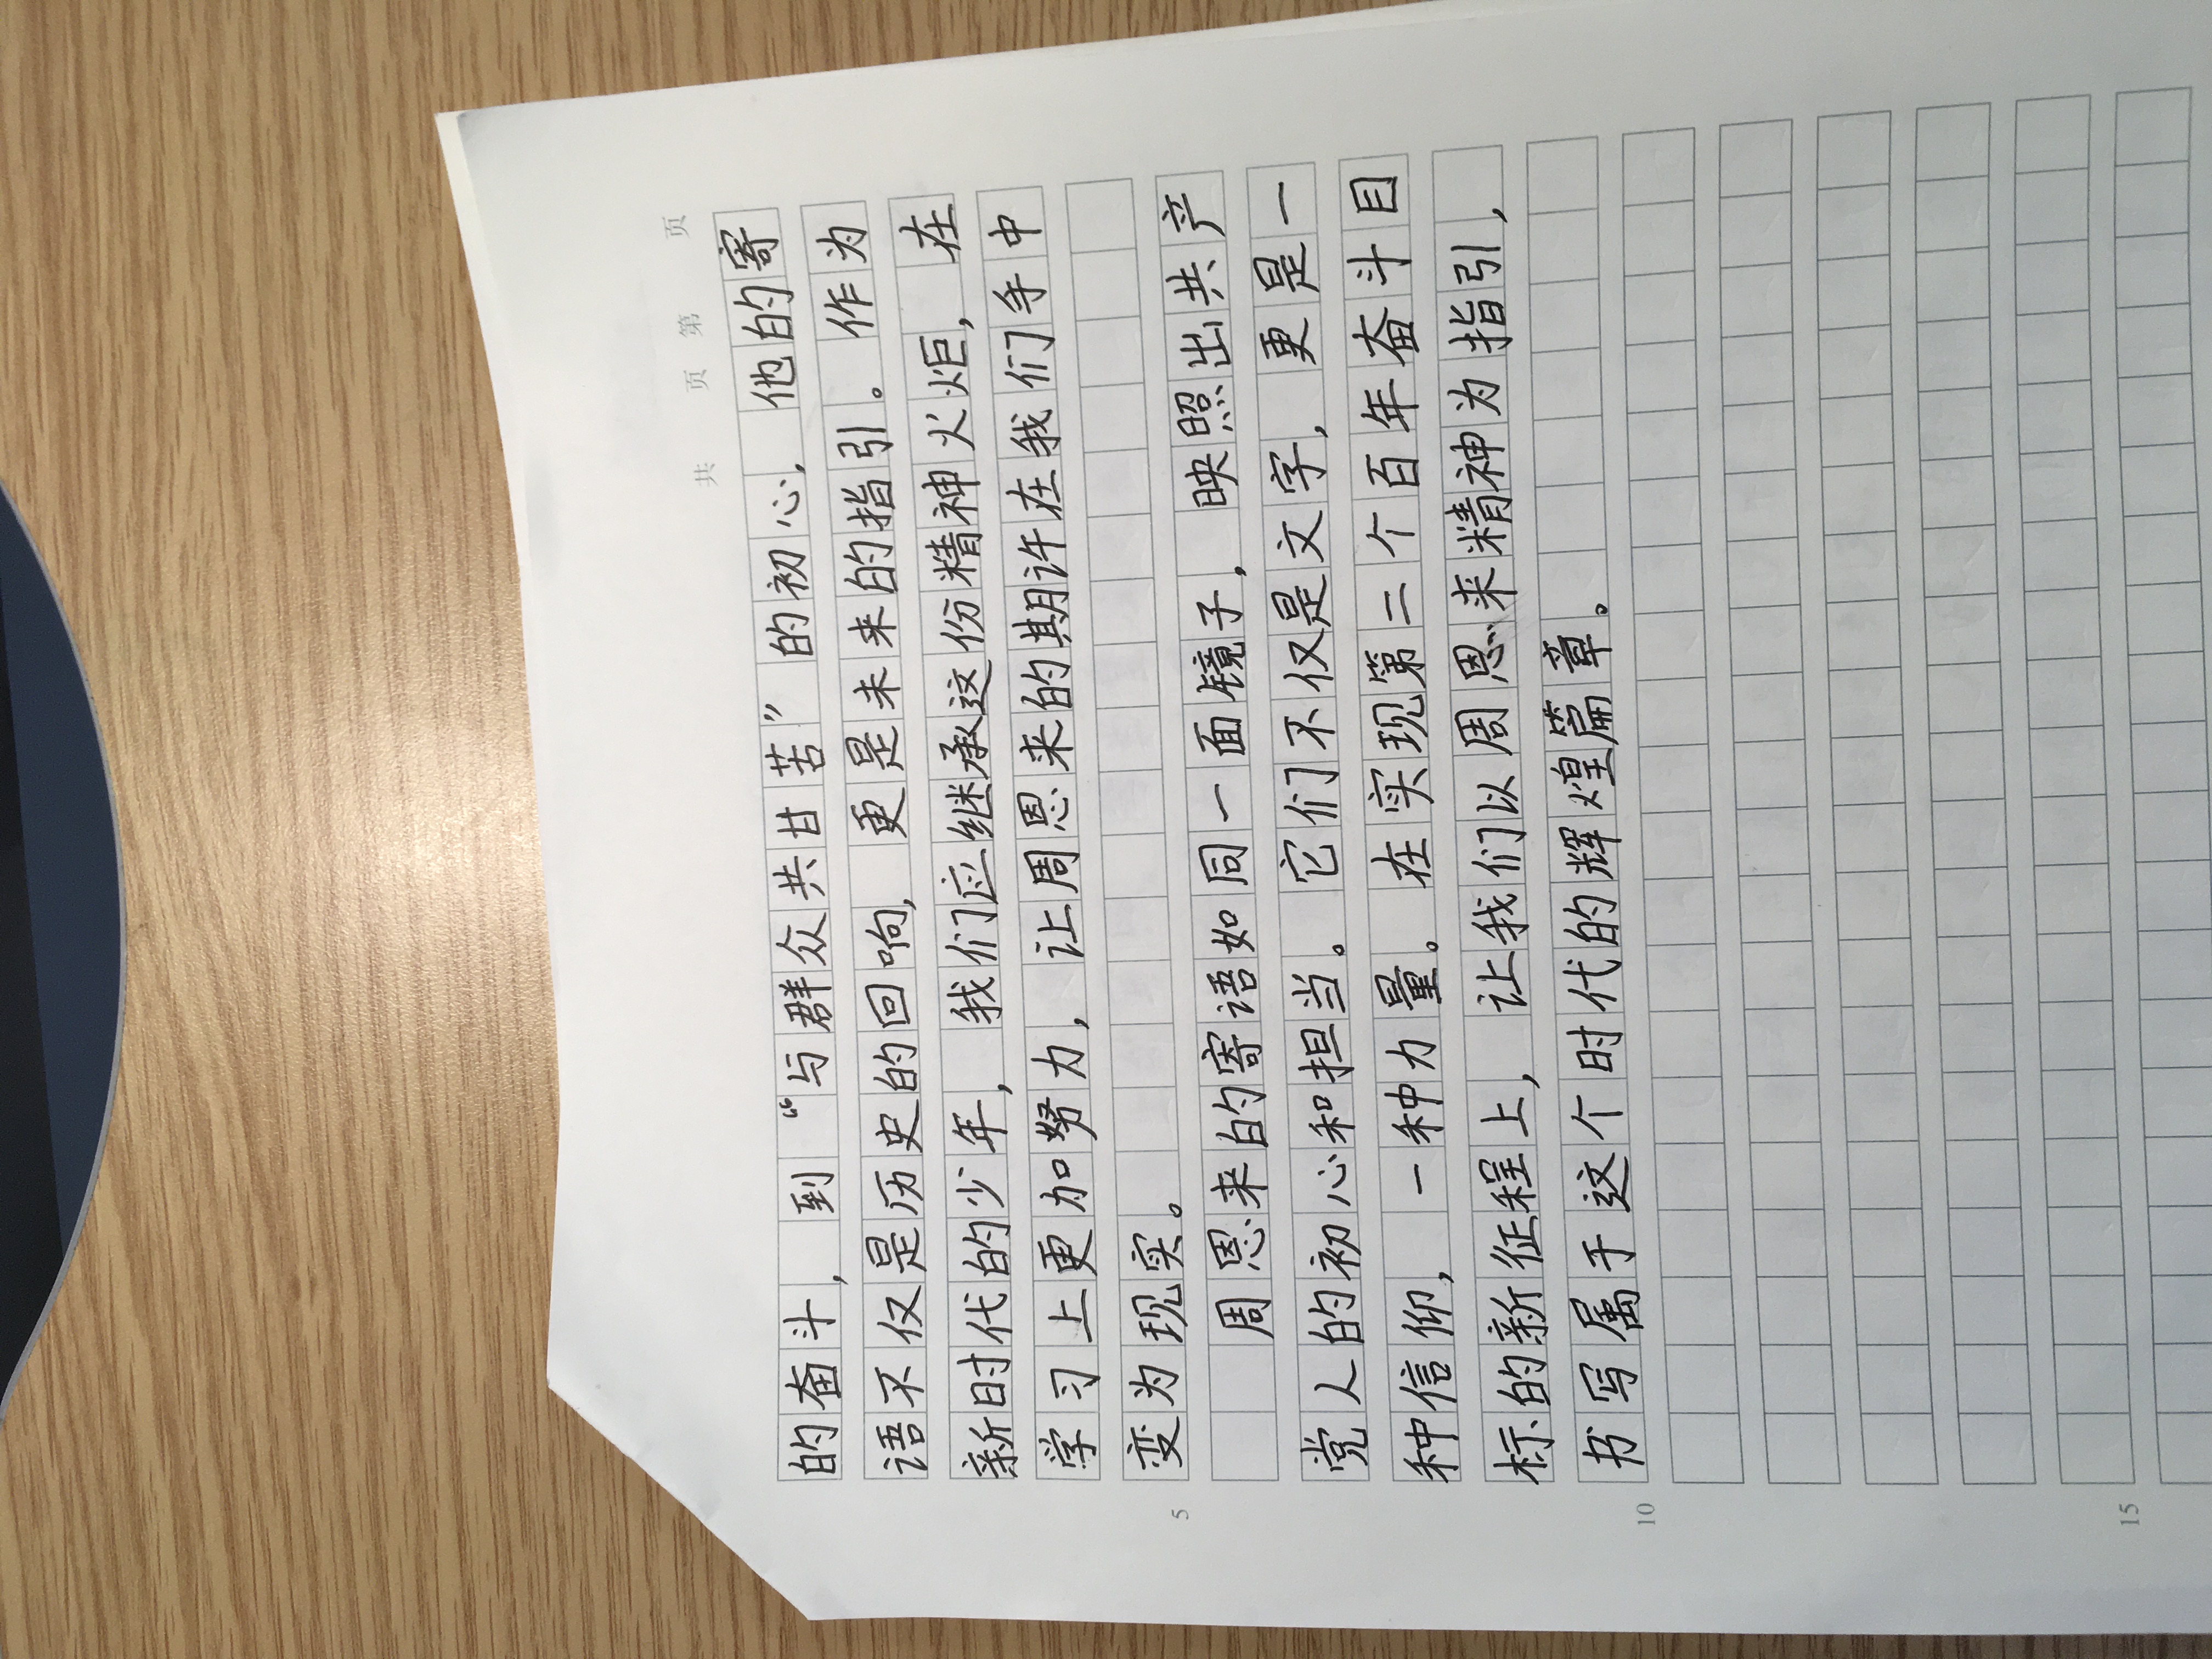 共 页 第 页
的奋斗，到“与群众共甘苦”的初心，他的寄
语不仅是历史的回响，更是未来的指引。作为
新时代的少年，我们应继承这份精神火炬，在
学习上更加努力，让周恩来的期许在我们手中
变为现实。
5
周恩来的寄语如同一面镜子，映照出共产
党人的初心和担当。它们不仅是文字，更是一
种信仰，一种力量。在实现第二个百年奋斗目
标的新征程上，让我们以周恩来精神为指引，
书写属于这个时代的辉煌篇章。
10
15